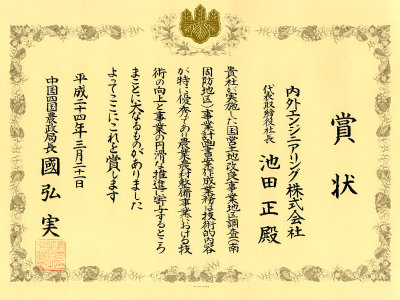 賞状
内外エンジニアリング株式会社
代表取締役社長 池田正殿
貴社が実施した国営土地改良事業地区調査(南
周防地区)事業計画書案作成業務は技術的内容
が特に優秀であり農業農村整備事業における技
術の向上と事業の円滑な推進に寄与するところ
まことに大なるものがありました
よってここにこれを賞します
平成二十四年三月二十一日
中国四国農政局長 國弘実